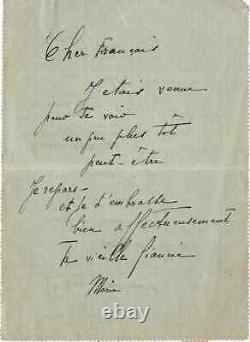 Cher François
J'etais venue
pour te voir
un peu plus tôt
peut-être
Je repars -
et je t'embrasse
bien affectueusement
Ta vieille fiancée
Marie
© worthpoint.com